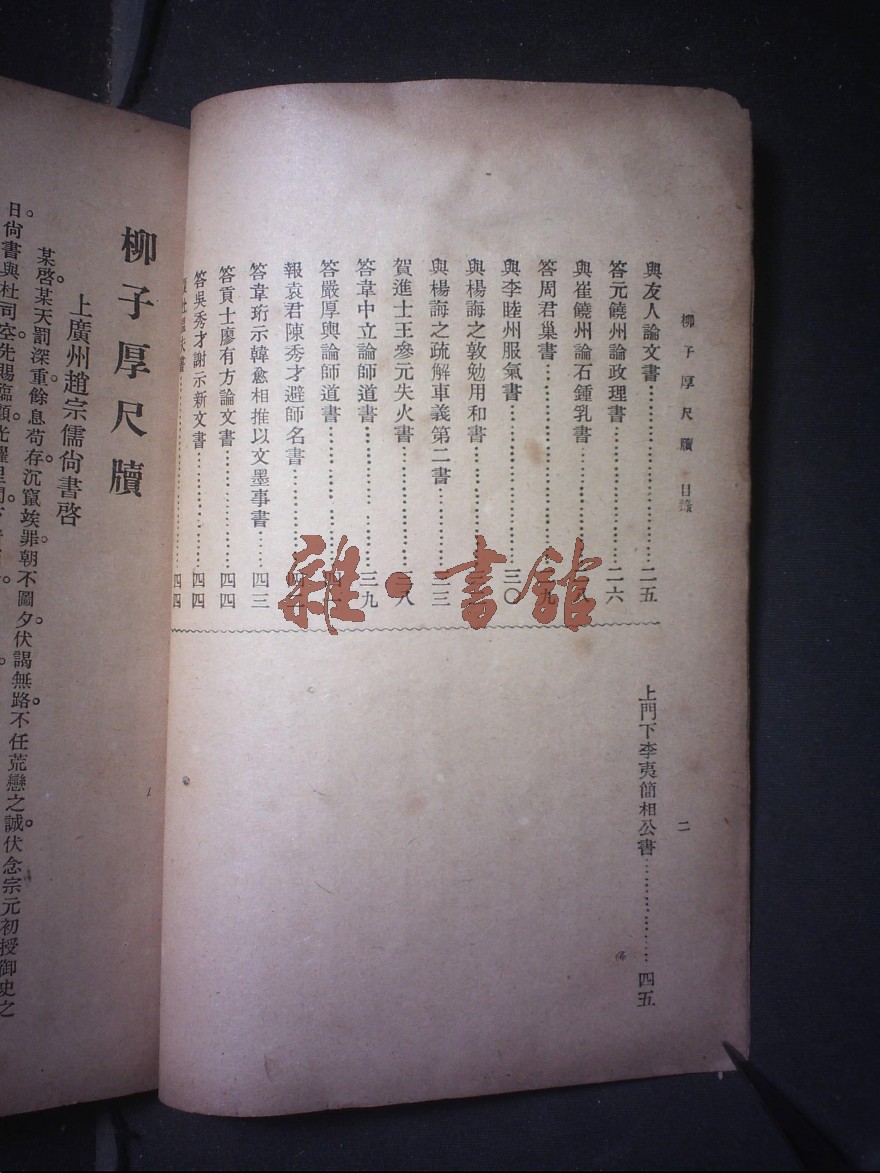 柳子厚尺牘 目錄
二
與友人論文書……二五
答元饒州論政理書……二六
與崔饒州論石鍾乳書……八
答周君巢書……九
與李睦州服氣書……三〇
與楊誨之敦勉用和書
與楊誨之疏解車義第二書……三三
賀進士王參元失火書……三八
答韋中立論師道書……三九
答嚴厚輿論師道書……四
報袁君陳秀才避師名書……四
答韋珩示韓愈相推以文墨事書……四三
答貢士廖有方論文書……四四
答吳秀才謝示新文書……四四
書……四四
上門下李夷簡相公書……四五
雜·書館
柳子厚尺牘
上廣州趙宗儒尙書啓
某啓。某天罰深重。餘息苟存。沉竄俟罪。朝不圖夕。伏謁無路。不任荒戀之誠。伏念宗元初授御史之
日。尙書與杜司空先賜臨顧。光耀里閭。